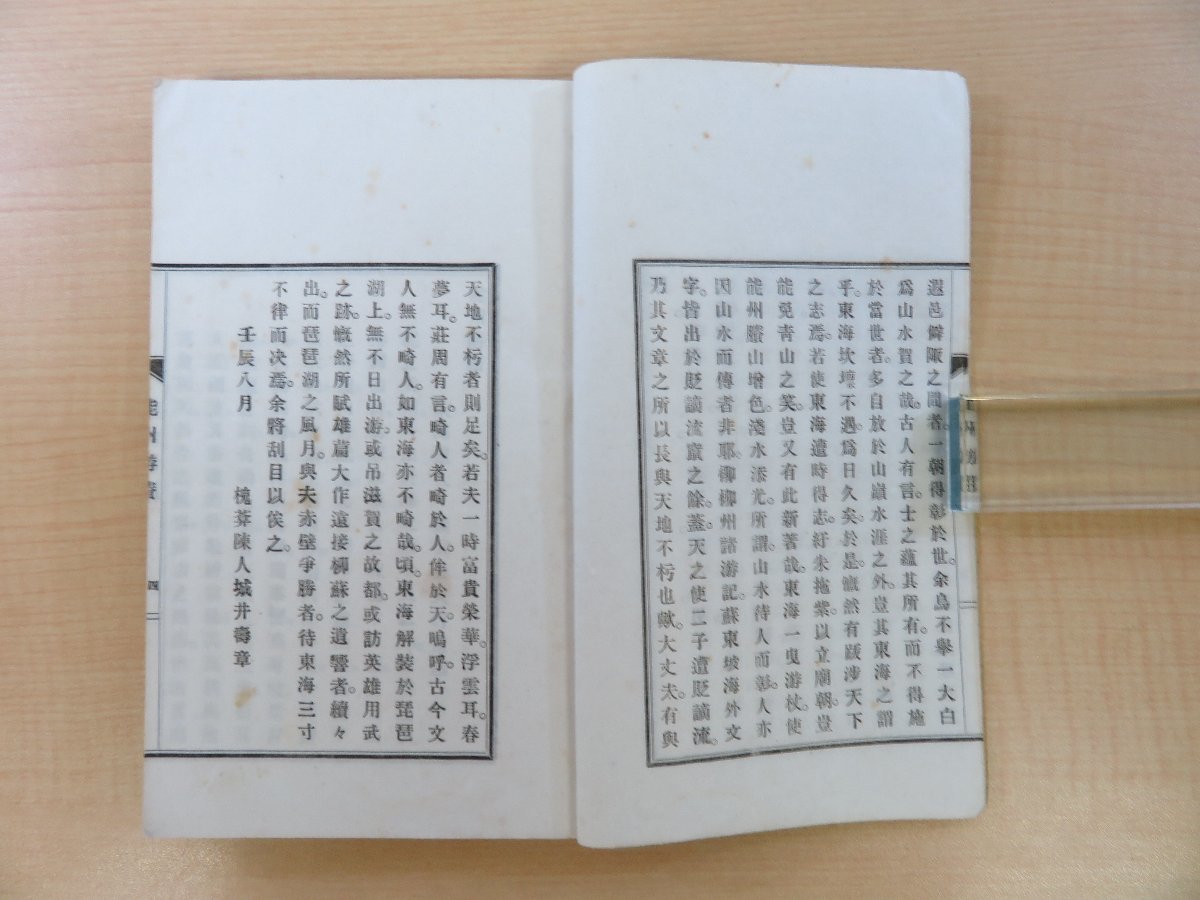 遐邑僻陬之間者。一朝得彰於世。余烏不擧一大白
爲山水賀之哉。古人有言。士之蘊其所有。而不得施
於當世者。多自放於山巓水涯之外。豈其東海之謂
乎。東海坎壈不遇。爲日久矣。於是。慨然有跋涉天下
之志焉。若使東海遭時得志。紆朱拖紫。以立廟朝。豈
能免靑山之笑。豈又有此新著哉。東海一曳游杖。使
能州勝山增色。淺水添光。所謂。山水待人而彰。人亦
因山水而傳者非耶。柳柳州諸游記。蘇東坡海外文
字。皆出於貶謫流竄之餘。蓋天之使二子遭貶謫流。
乃其文章之所以長與天地不朽也歟。大丈夫。有與
天地不朽者則足矣。若夫一時富貴榮華。浮雲耳。春
夢耳。莊周有言。畸人者畸於人。侔於天。嗚呼。古今文
人無不畸人。如東海亦不畸哉。頃。東海解裝於琵琶
湖上。無不日出游。或吊滋賀之故都。或訪英雄用武
之跡。慨然所賦雄篇大作。遠接柳蘇之遺響者。續々
出。而琵琶湖之風月。與夫赤壁爭勝者。待東海三寸
不律而决焉。余將刮目以俟之。
壬辰八月
槐葊陳人城井壽章
四